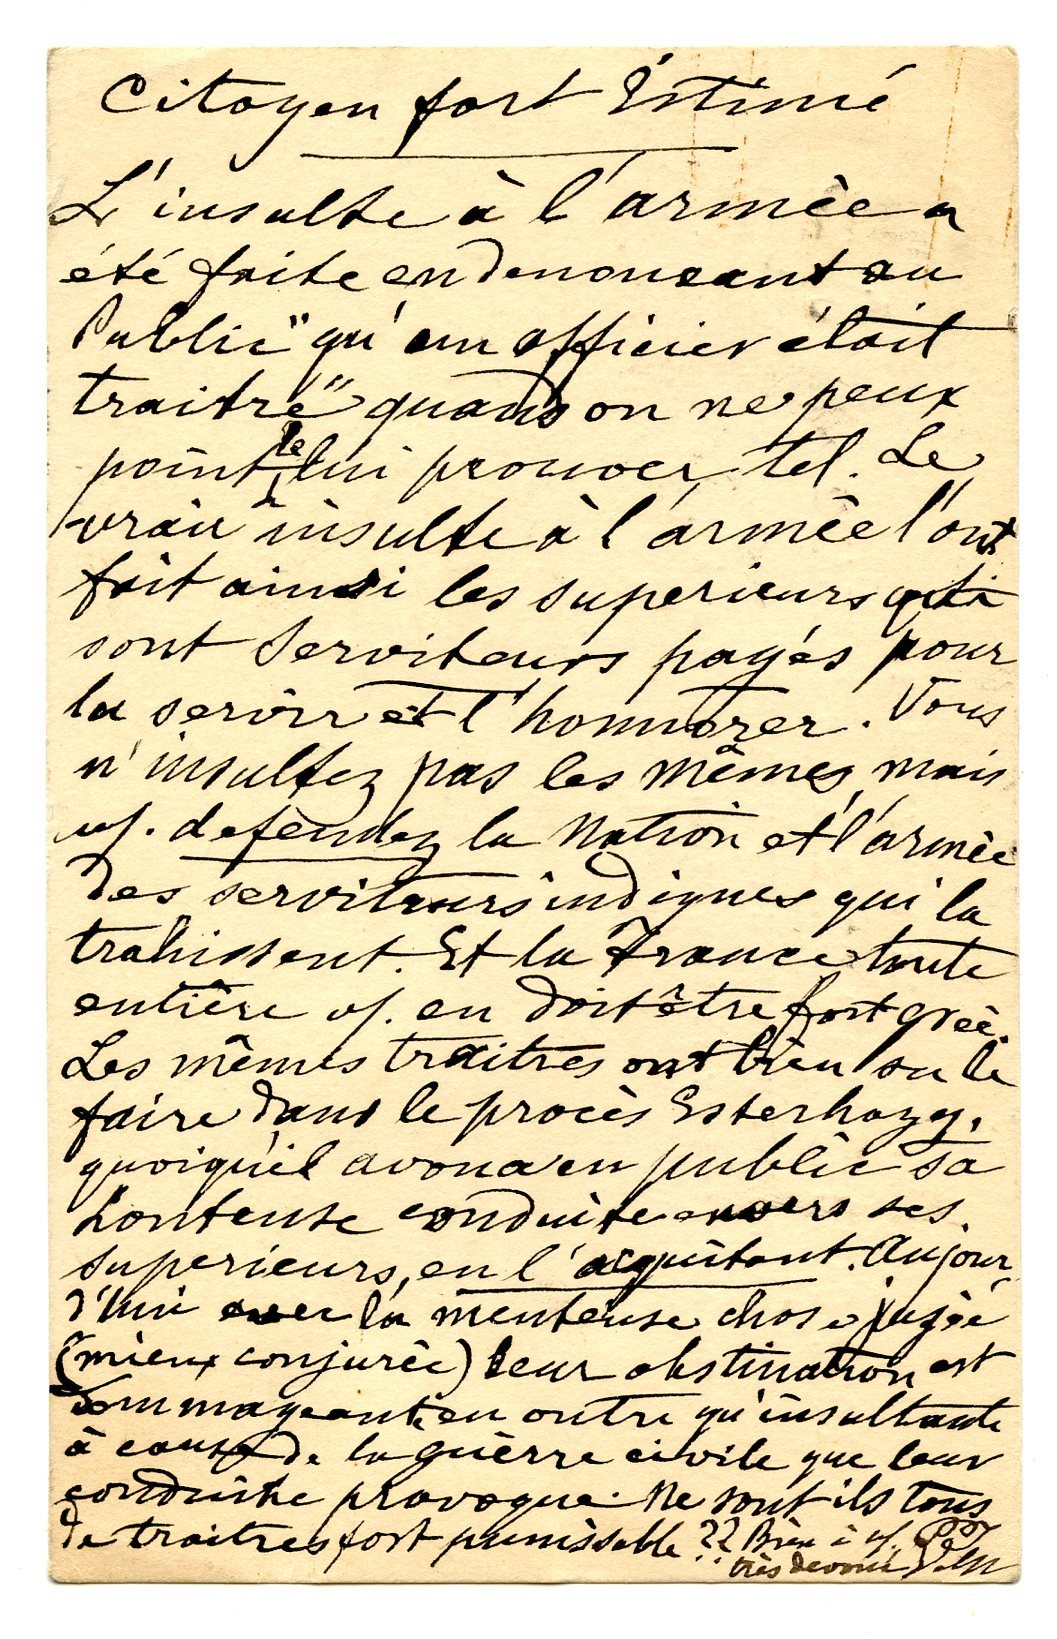 Citoyen fort Estimé
L'insulte à l'armèe a
été faite en denonsant au
Public "qu'un officier était
traitre" quand on ne peux
point le lui prouver tel. Le
vrai insulte à l'armèe l'ont
fait ainsi les superieurs qui
sont Serviteurs payés pour
la servir et l'honnorer. Vous
n'insultez pas les mêmes, mais
vs. defendez la Nation et l'armèe
des serviteurs indignes qui la
trahissent. Et la France toute
entière vs. en doit être fort grèè.
Les mêmes traitres ont bien su le
faire dans le procès Esterhazy,
quoiqu'il avoua en public sa
honteuse conduite envers ses
superieurs, en l'acquitant. Aujour
d'hui avec la menteuse chose jugèe
(mieux conjurèe) leur obstination est
dommageante en outre qu'insultante
à cause de la guèrre civile que leur
conduite provoque. Ne sont ils tous
de traitres fort punissable ?? Bien à vs.
très devoué